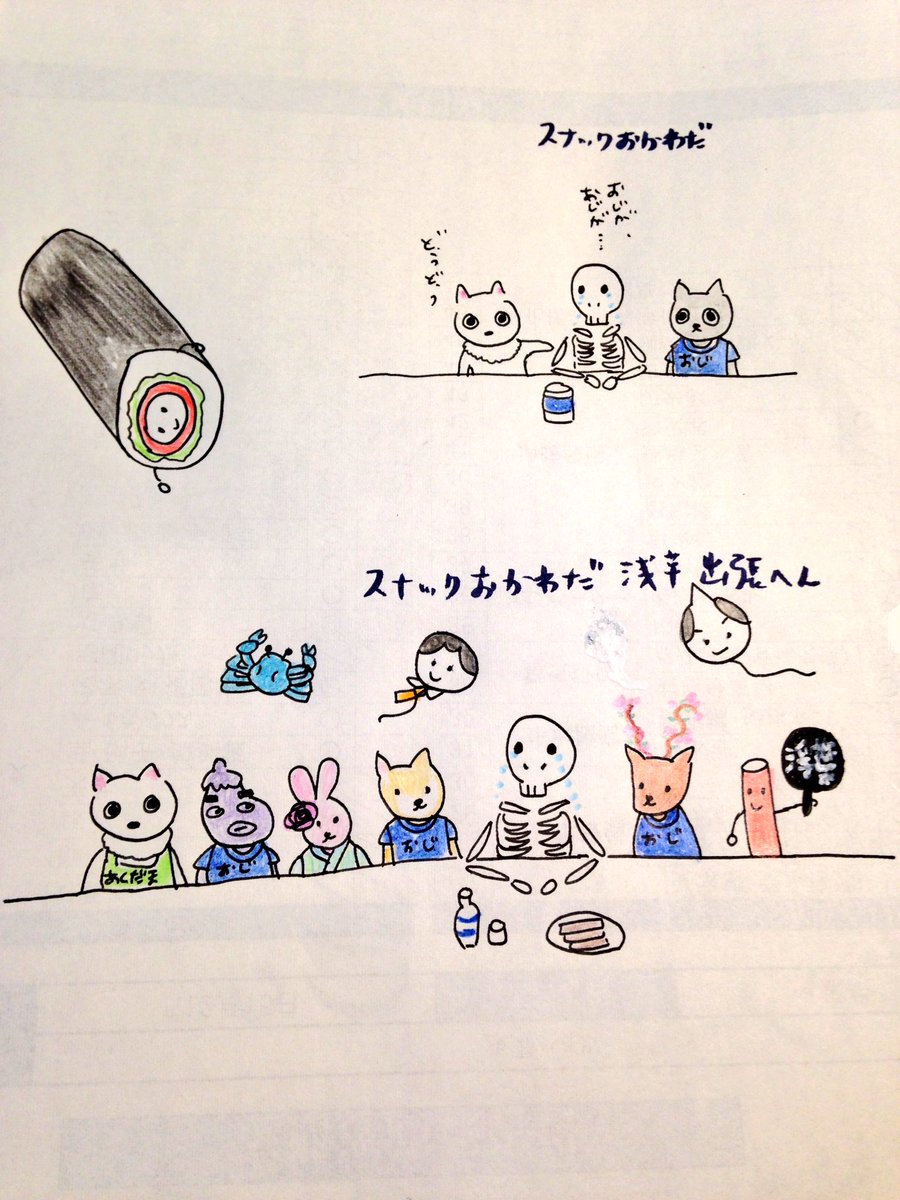 スナックおかわだ
おじが、
おじが…
どうどう
おじ
スナックおかわだ 浅草 出張へん
おじ
おじ
おじ